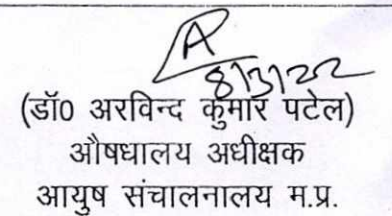 8/3/22
(डॉ0 अरविन्द कुमार पटेल)
औषधालय अधीक्षक
आयुष संचालनालय म.प्र.